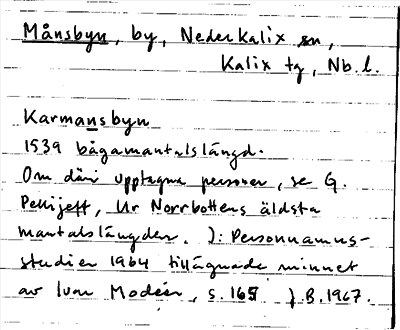 Månsbyn, by, Nederkalix sn,
Kalix tg, Nb. l.
Karmansbyn
1539 bågamantalslängd.
Om däri upptagna personer, se G.
Pellijeff, Ur Norrbottens äldsta
mantalslängder. I: Personnamns-
studier 1964 tillägnade minnet
av Ivar Modéer, s. 165. J.B. 1967.